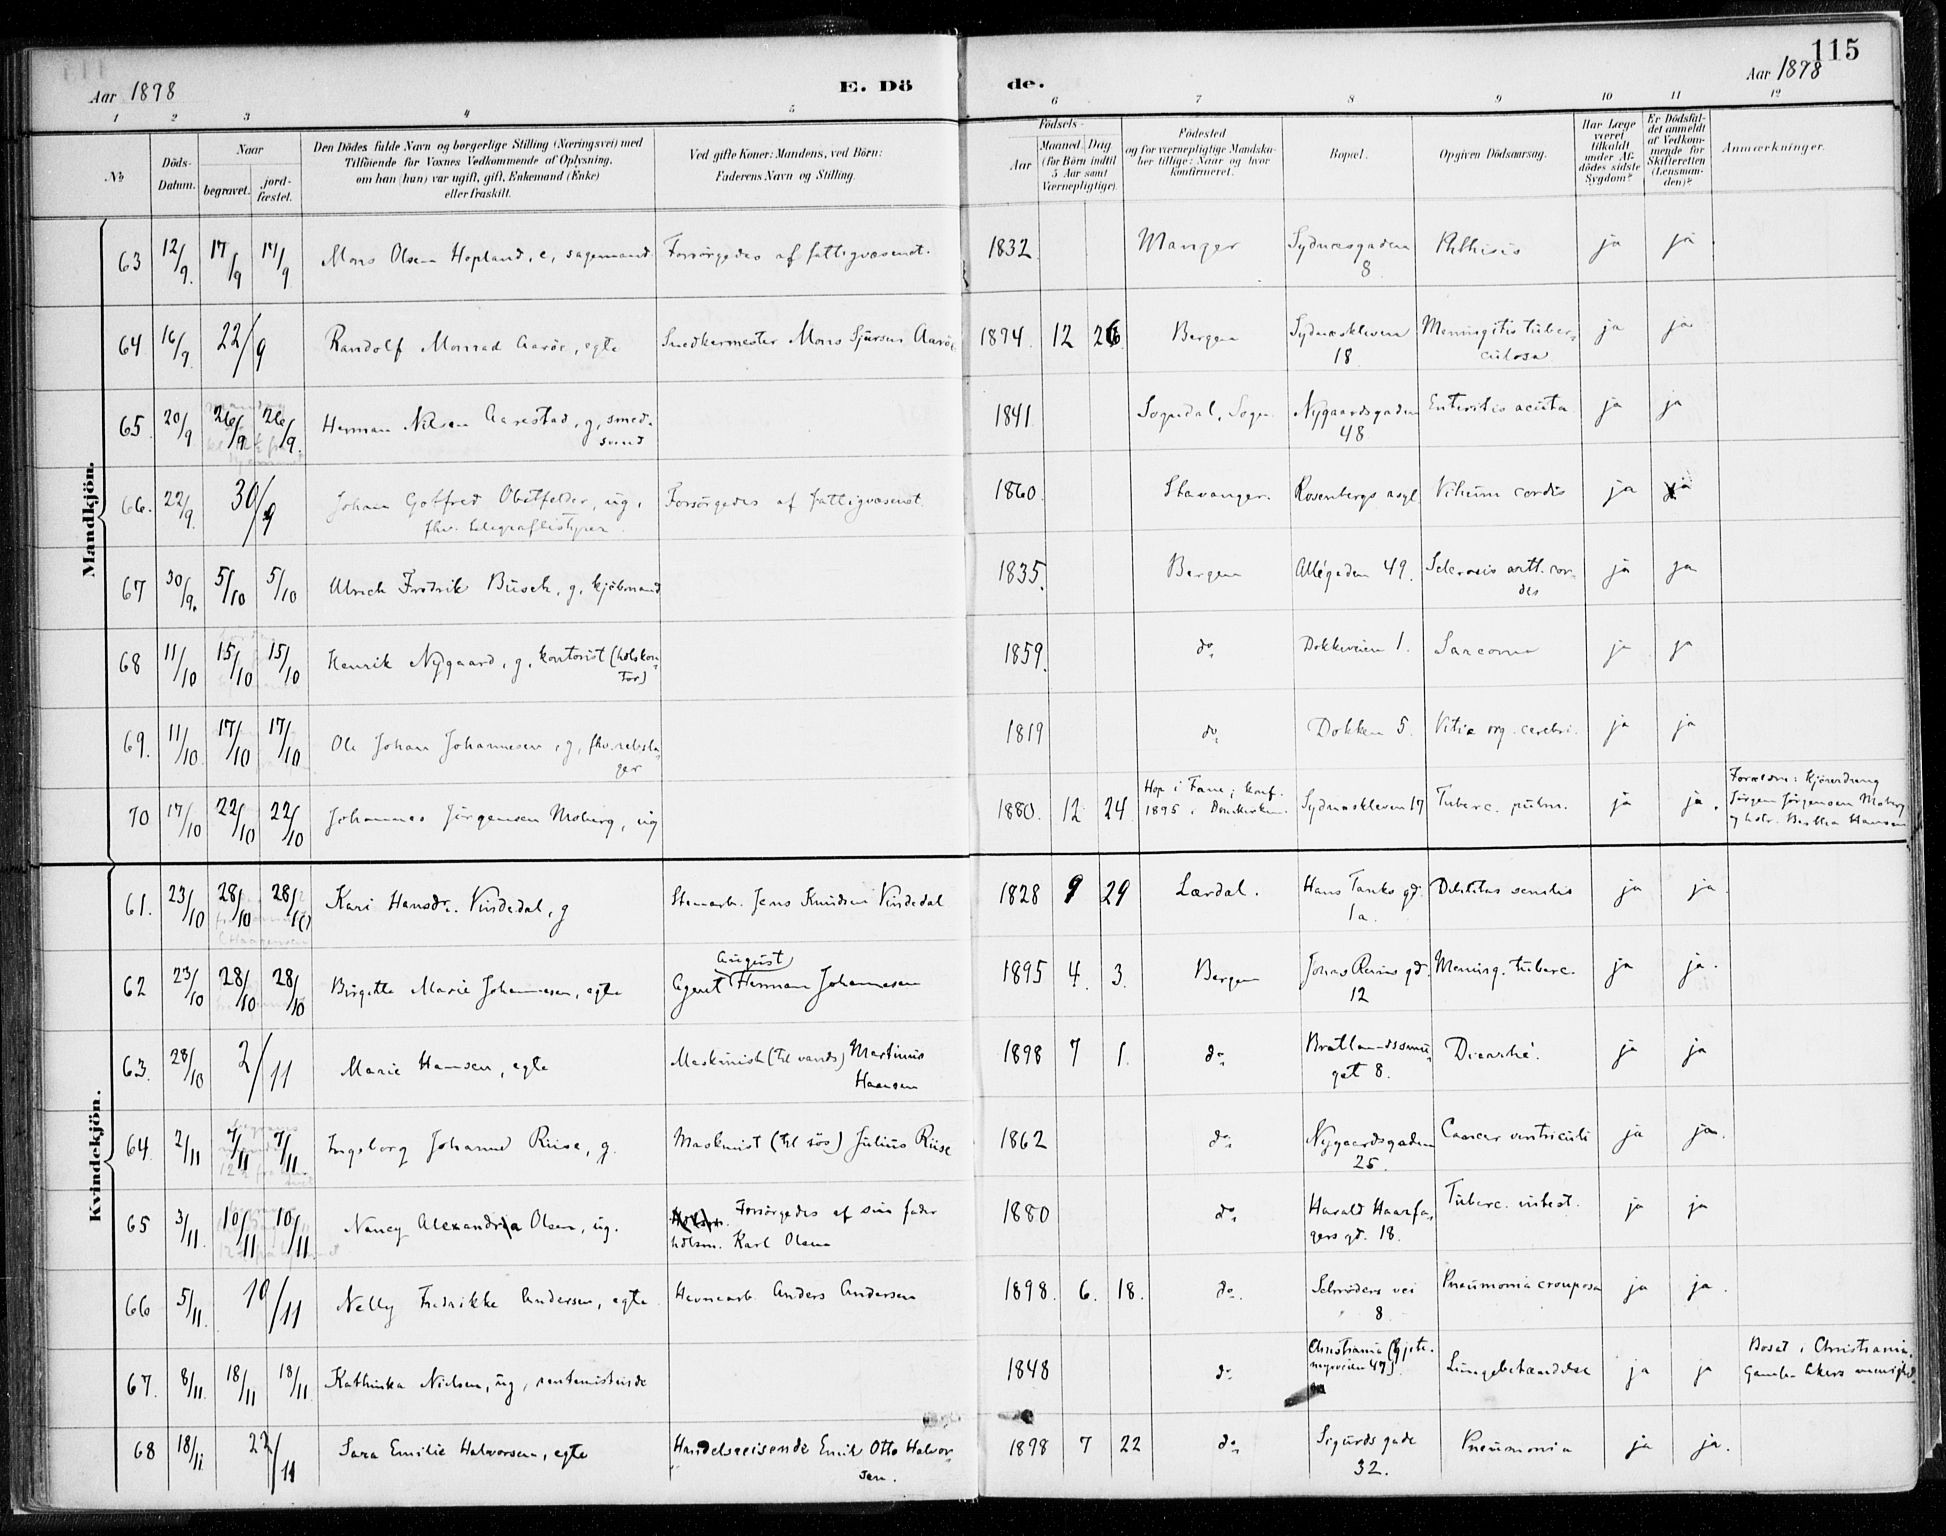 115
Aar 1898
E. Dö de.
Aar 1898
1 2 3 4 5 6 7 8 9 10 11 12
No
Döds-Datum.
Naar
begravet.
jord-fæstet.
Den Dödes fulde Navn og borgerlige Stilling (Næringsvei) med
Tilföiende for Voxnes Vedkommende af Oplysning,
om han (hun) var ugift, gift, Enkemand (Enke)
eller fraskilt.
Ved gifte Koner: Mandens, ved Börn:
Faderens Navn og Stilling.
Födsels-
Aar
Maaned. Dag
(for Börn indtil
5 Aar samt
Værnepligtige).
Födested
og for værnepligtige Mandska-
ber tillige: Naar og hvor
konfirmeret.
Bopæl.
Opgiven Dödsaarsag.
Har Læge
været
tilkaldt
under Af-
dödes sidste
Sygdom?
Er Dödsfal-
det anmeldt
af Vedkom-
mende for
Skifteretten
(Lensman-
den)?
Anmærkninger.
Mandkjön.
63 12/9. 17/9 17/9 Mons Olsen Hopland, e, sagemand Forsørgedes af fattigvæsenet. 1832 Manger Sydnæsgaden 8 Phthisis ja ja
64 16/9. 22/9 Randolf Monrad Aarøe, egte Snedkermester Mons Sjursen Aarøe 1894. 12 26 Bergen Sydneskleven 18 Meningitis tuber-
culosa ja ja
65. 20/9 26/9 26/9. Herman Nilsen Aarestad, g, smed-
svend 1841 Sogndal, Sogn Nygaardsgaden 48 Enteritis acuta ja ja
66. 22/9. 30/9 Johan Gotfred Obstfelder, ug,
fhv. telegrafbestyrer Forsørgedes af fattigvæsenet. 1860. Stavanger. Rosenbergs asyl Vitium cordis ja ja
67 30/9. 5/10 5/10 Ulrich Fredrik Busch, g, kjøbmand 1835. Bergen Allégaden 49. Sclerosis artt. cor-
dis ja ja
68 11/10 15/10 15/10 Henrik Nygaard, g, kontorist (hdlskon-
tor) 1859. do. Dokkeveien 1. Sarcoma ja ja
69. 11/10 17/10 17/10 Ole Johan Johannesen, g, fhv. rebsla-
ger 1819 do. Dokken 5. Vitia org. cerebri. ja ja
70 17/10 22/10 22/10 Johannes Jørgensen Moberg, ug 1880. 12 24 Hop i Fane; konf.
1895 i Domkirken. Sydneskleven 17 Tuberc. pulm. ja ja. Forældre: Kjøredreng
Jørgen Jørgensen Moberg
og hstr. Berthea Hansen
Kvindekjön.
61. 23/10 28/10 28/10 Kari Hansdr. Vindedal, g Stenarb. Jens Knudsen Vindedal 1828 9 29 Lærdal. Hans Tanks gd. 1a. Debilitas senilis ja ja.
62 23/10 28/10 28/10 Birgitte Marie Johannesen, egte Agent August Herman Johannesen 1895 4. 3. Bergen Jonas Reins gd. 12 Mening. tuberc. ja ja.
63. 28/10 2/11 Marie Hansen, egte Maskinist (til vands) Martinus
Hansen 1898 7 1. do. Bratlandssmu-
get 8. Diarrhé. ja ja
64. 2/11 7/11 7/11 Ingeborg Johanne Riise, g. Maskinist (til søs) Julius Riise 1862 do. Nygaardsgaden 25. Cancer ventriculi ja ja.
65 3/11. 10/11 10/11. Nancy Alexandra Olsen, ug. Forsørgedes af sin fader
hdlsm. Karl Olsen 1880 do. Harald Haarfa-
gers gd. 18. Tuberc. intest. ja ja
66 5/11. 10/11 Nelly Fredrikke Andersen, egte Havnearb. Anders Andersen 1898. 6. 18. do. Schrøders vei 8. Pneumonia crouposa ja ja.
67. 8/11. 18/11 18/11. Kathinka Nielsen, ug, rentenistinde 1848 do. Christiania (Gjete-
myrveien 47) Lungebetændelse ja ja Bosat i Christiania.
Gamle Akers menighed.
68 18/11 22/11 Sara Emilie Halvorsen, egte Handelsreisende Emil Otto Halvor-
sen. 1898 7 22 do. Sigurds gade 32. Pneumonia ja ja.